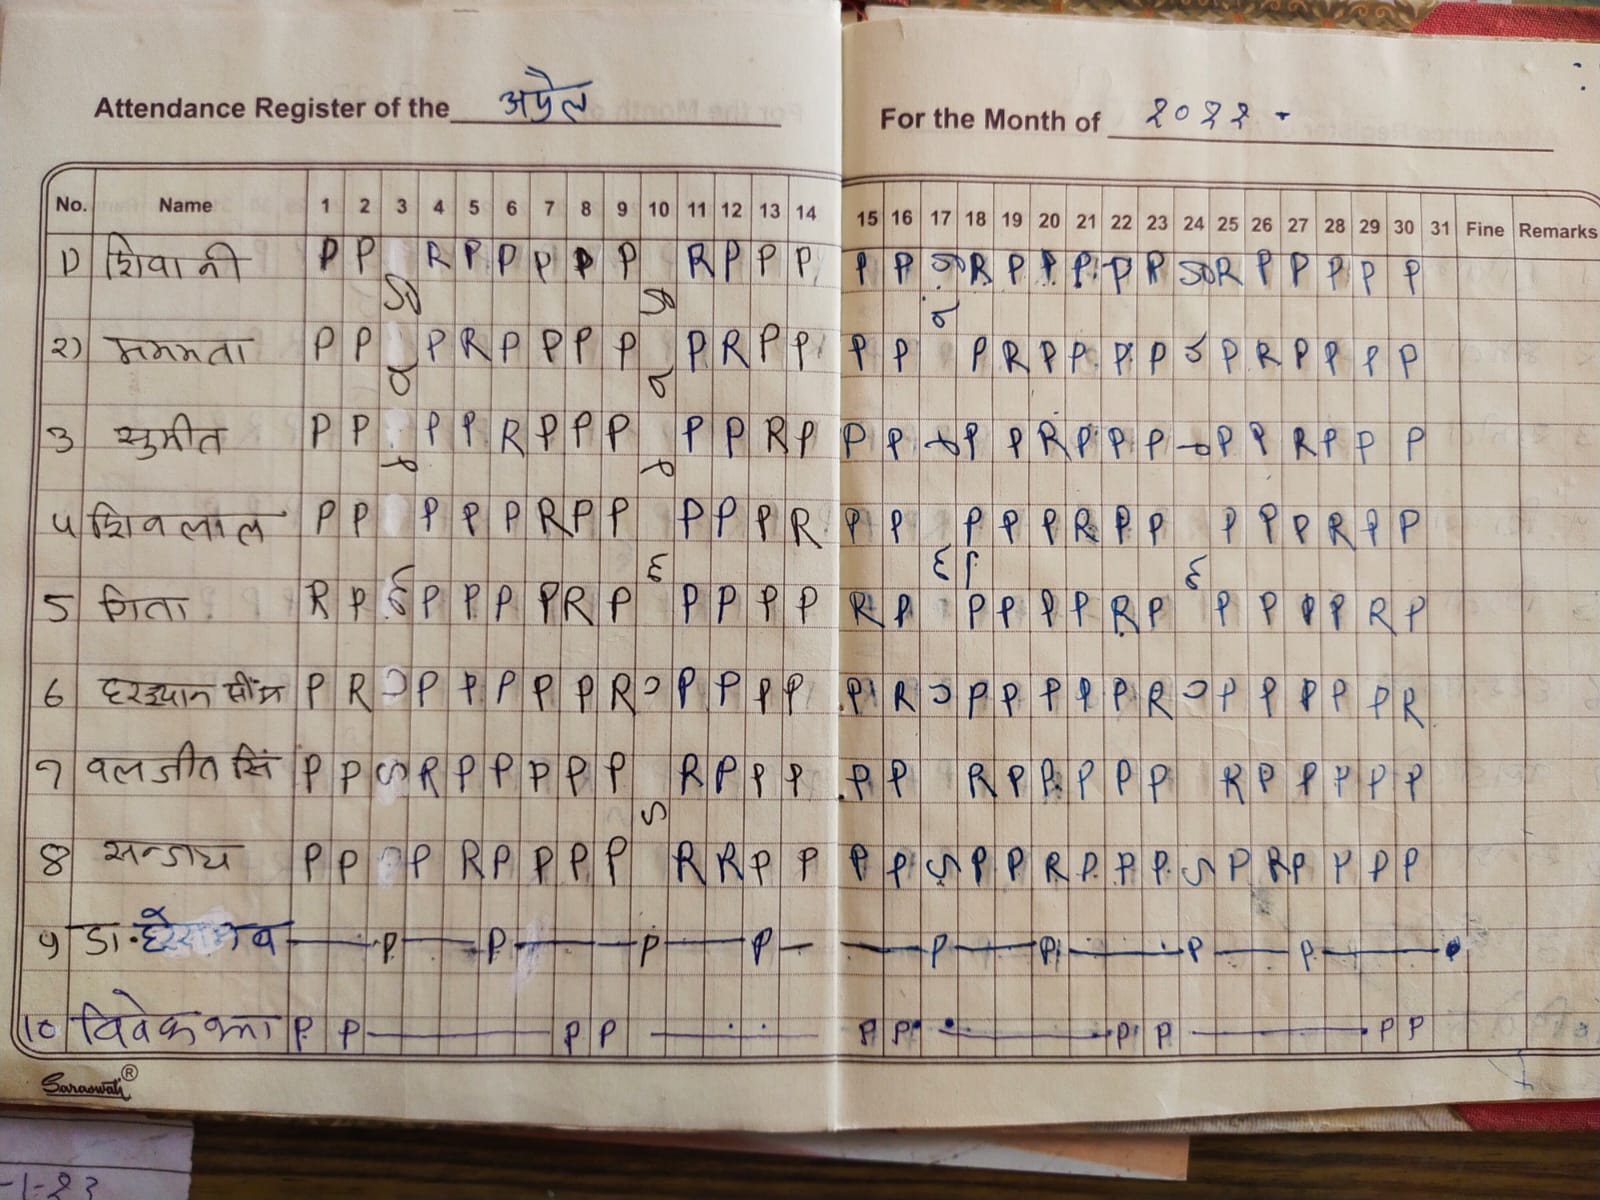 Attendance Register of the अप्रेल For the Month of २०२२
No. Name 1 2 3 4 5 6 7 8 9 10 11 12 13 14 15 16 17 18 19 20 21 22 23 24 25 26 27 28 29 30 31 Fine Remarks
1) शिवानी P P R P P P P P R P P P P P R P P P P P R P P P P P
२) ममता P P P R P P P P P R P P P P P R P P P P P R P P P P
3 सुमीत P P P P R P P P P P R P P P P P R P P P P P R P P P
4 शिवलाल P P P P P R P P P P P R P P P P P R P P P P P R P P
5 गिता R P P P P P R P P P P P R P P P P P R P P P P P R P
6 P R P P P P P R P P P P P R P P P P P R P P P P P R
7 वलजीत सिं P P S R P P P P P R P P P P P R P P P P P R P P P P P
8 सन्जय P P P R P P P P R R P P P P S P P R P P P S P R P P P P
9 डा. P P P P P P P P
10 P P P P P P P P P P
Saraswati ®
-1-23